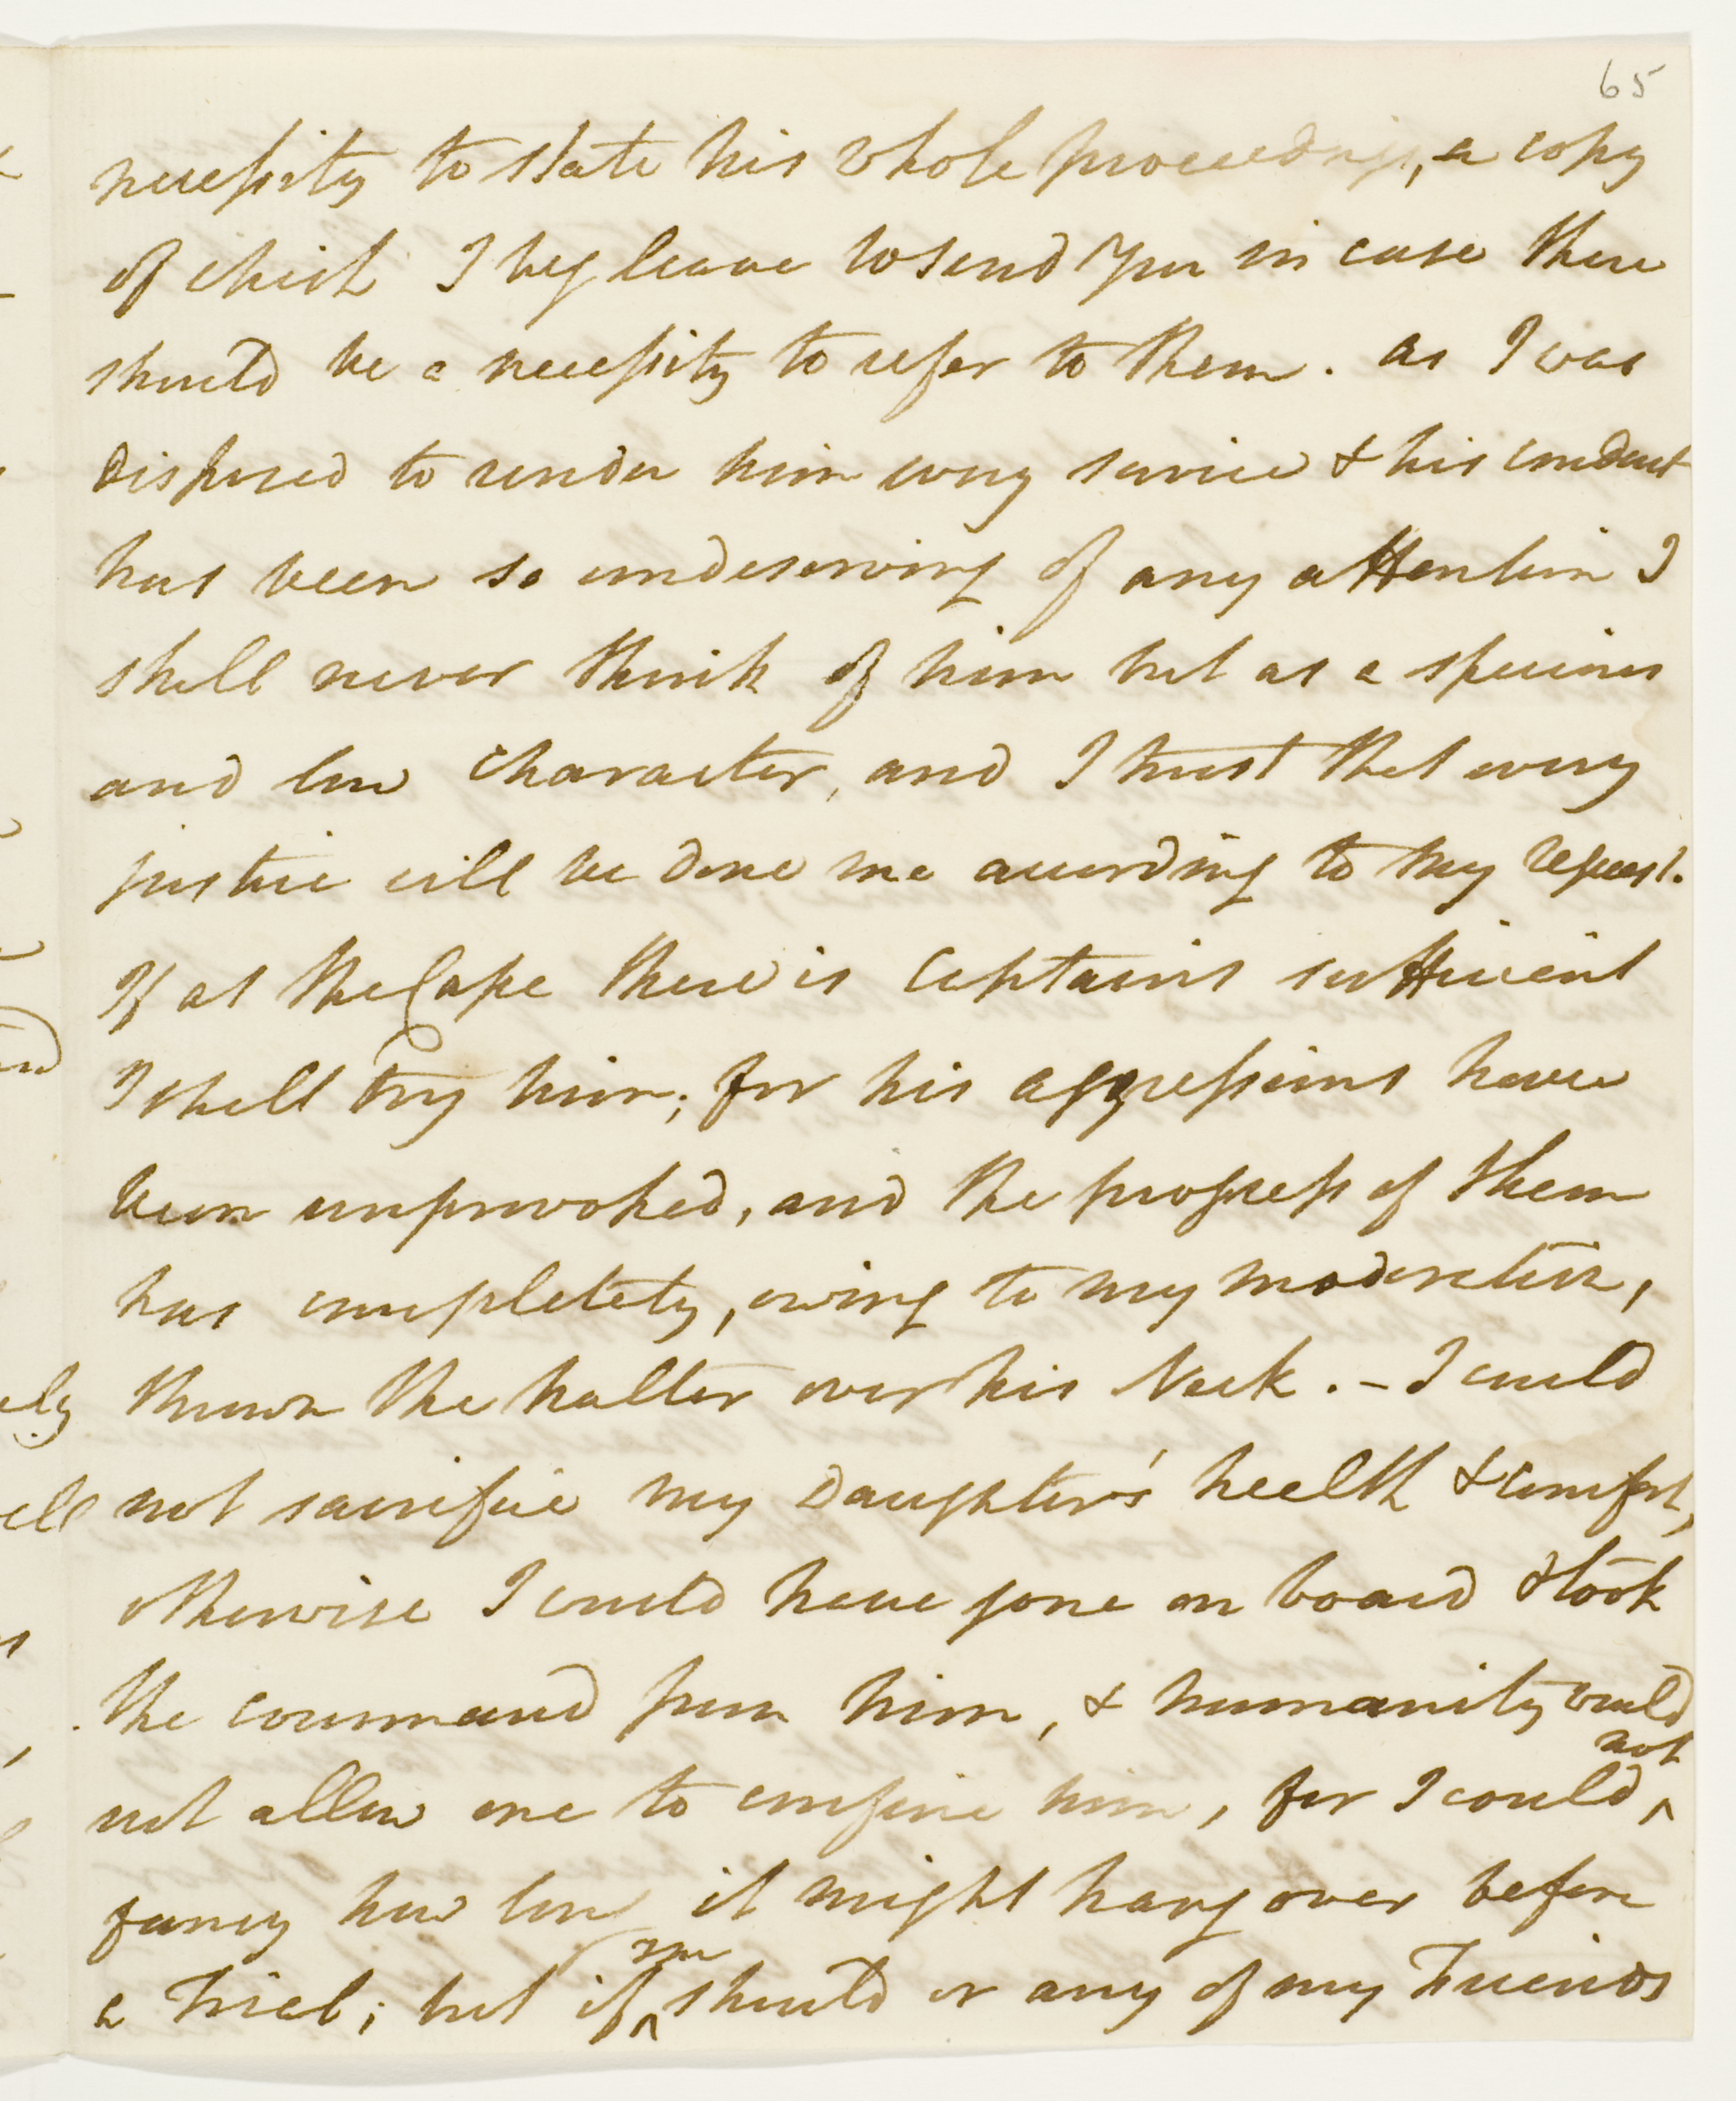 65
necessity to state his whole proceedings, a copy
of which I beg leave to send you in case there
should be a necessity to refer to them. as I was
disposed to render him every service & his conduct
has been so undeserving of any attention I
shall never think of him but as a specious
and low character, and I trust that every
justice will be done me according to my request.
If at the Cape there is Captains sufficient
I shall try him; for his aggressions have
been unprovoked, and the progress of them
has completely, owing to my moderation,
thrown the halter over his Neck. – I could
not sacrifice my Daughter's health & comfort,
otherwise I could have gone on board & took
the command from him, & humanity would
not allow me to confine him, for I could not
fancy how long it might hang over before
a Trial; but if one should or any of my Friends